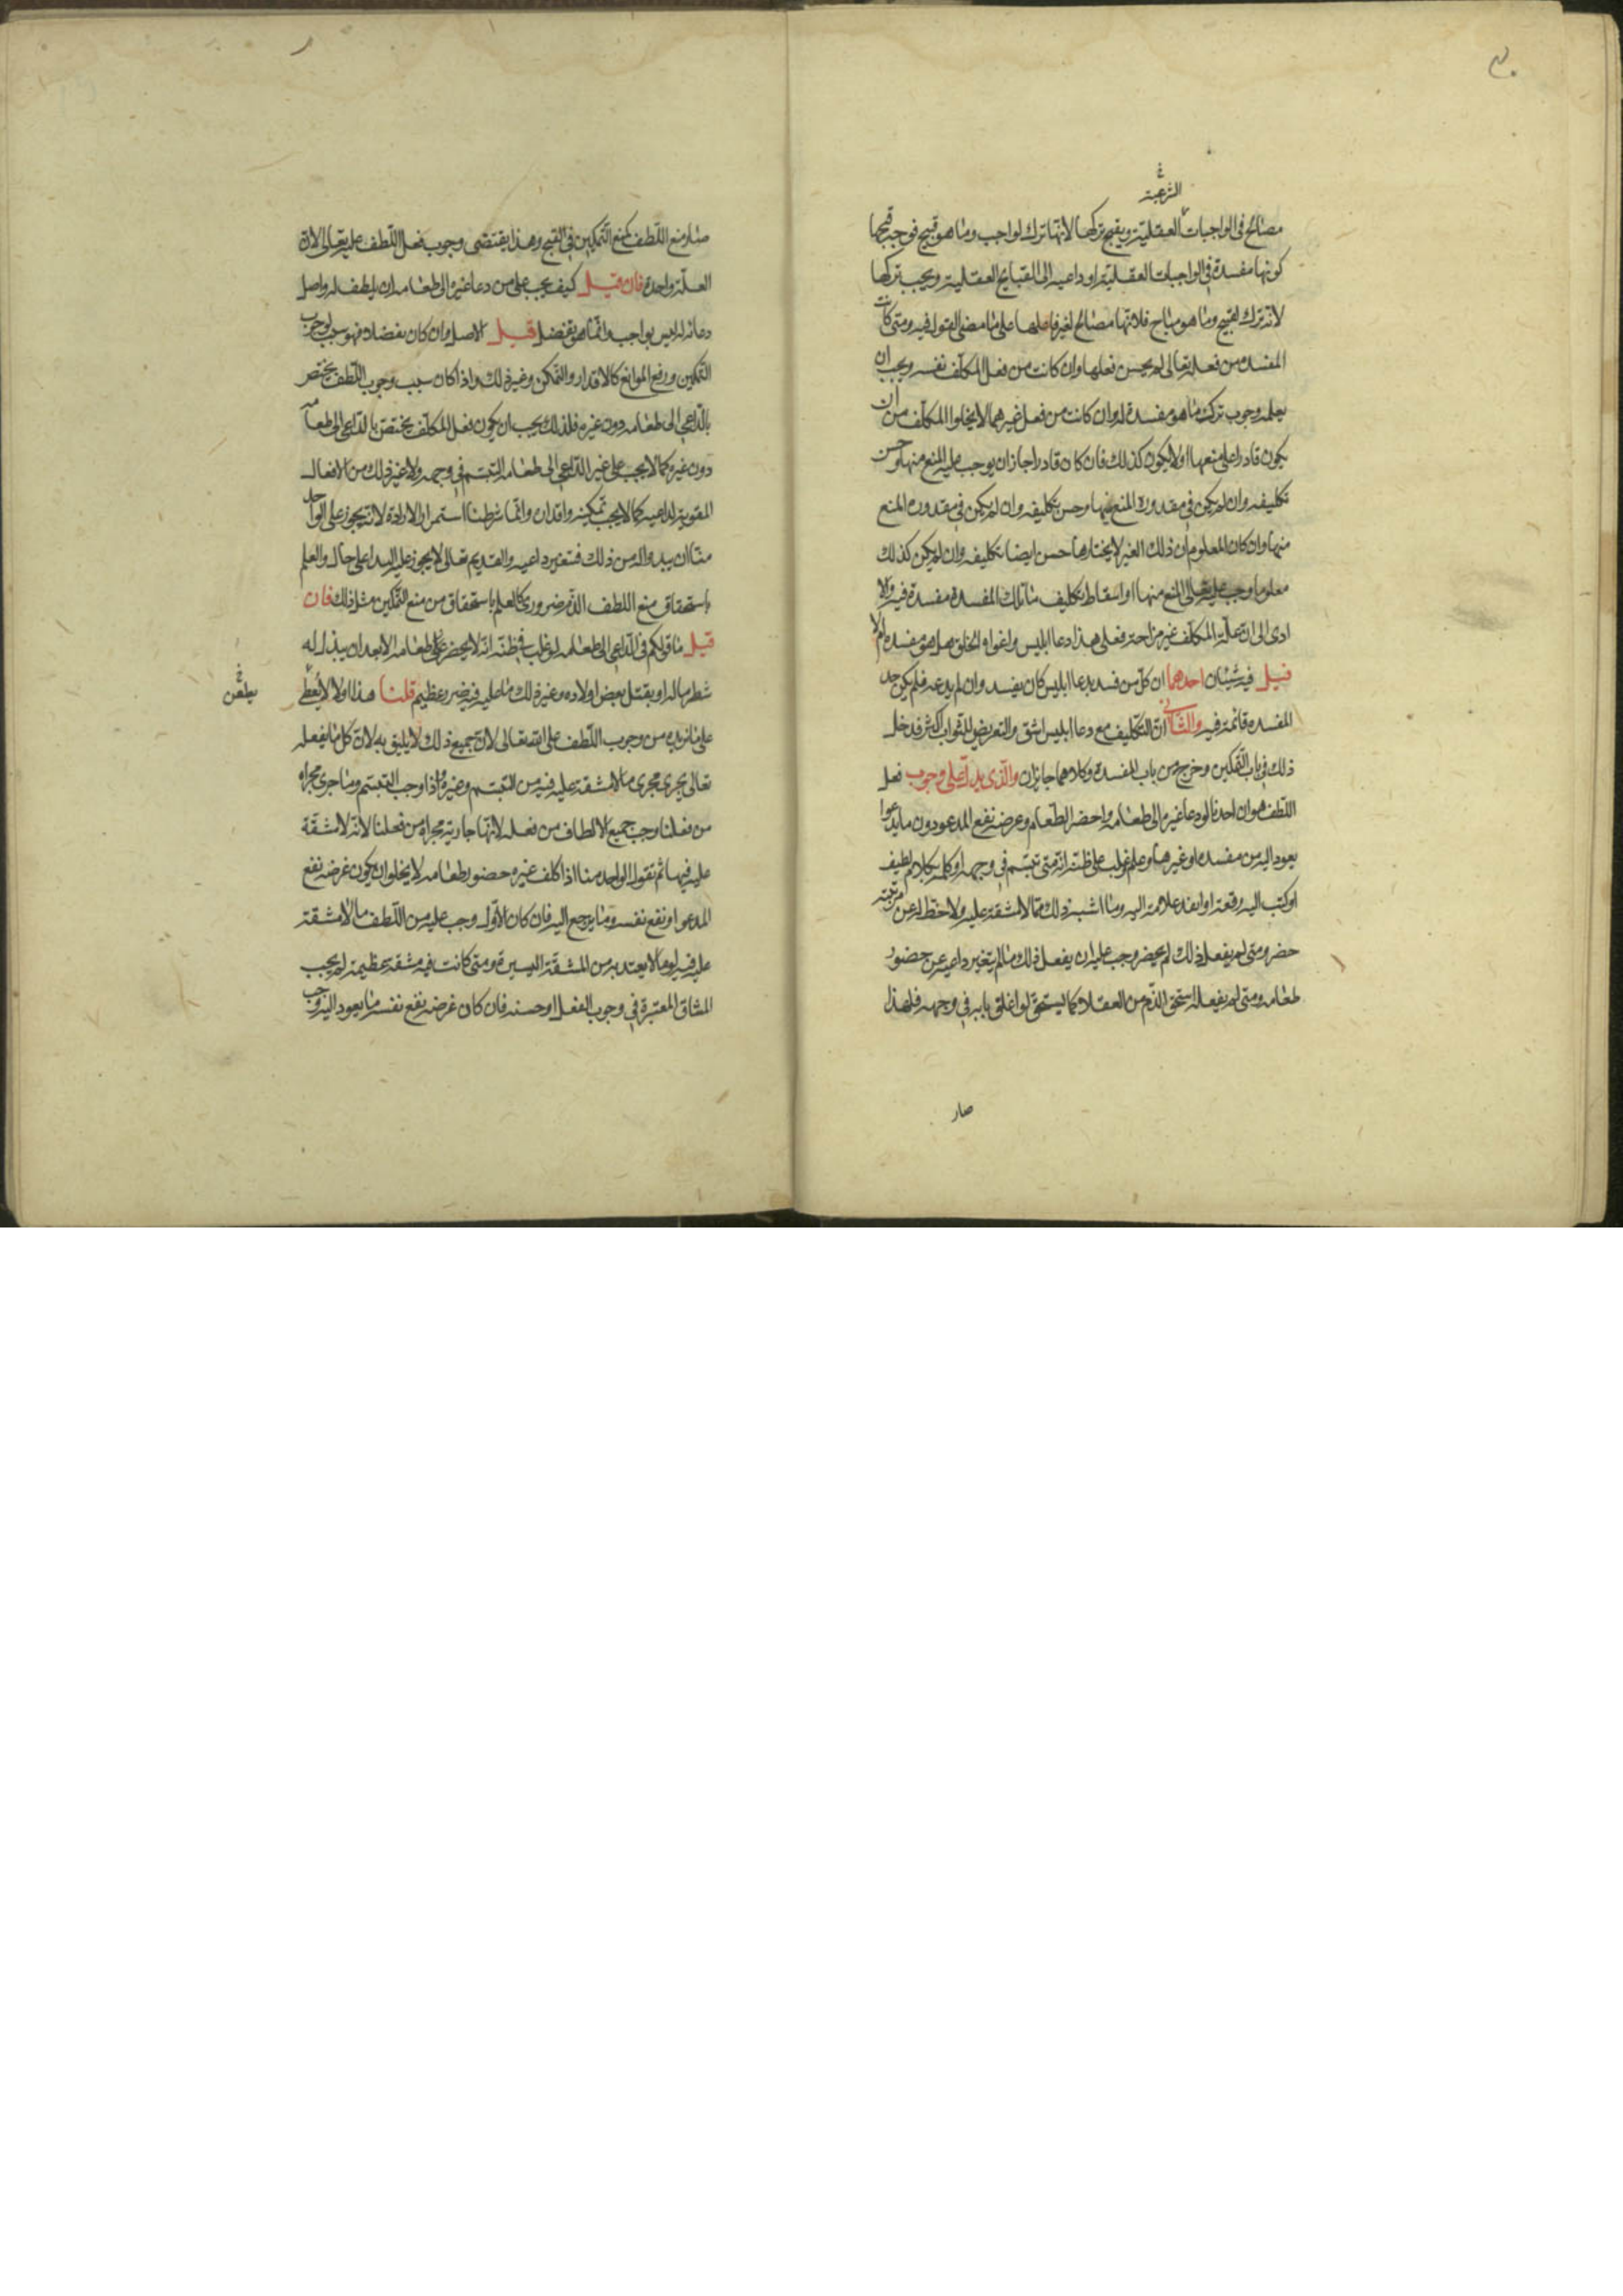 ٣٠
الشرعية
مصالح في الواجبات العقلية ويقبح تركها لانها ترك لواجب وما هو قبيح فوجه قبحها
كونها مفسدة في الواجبات العقلية او داعية الى القبايح العقلية ويجب تركها
لانه ترك لقبيح وما هو مباح فلانها مصالح لغير فاعلها على ما مضى القول فيه ومتى كانت
المفسدة من فعله تعالى لم يحسن فعلها وان كانت من فعل المكلف نفسه ويجب ان
يعلمه وجوب ترك ما هو مفسدة له وان كانت من فعل غيرهما لا يخلوا المكلف من ان
يكون قادرا على منعها اولا يكون كذلك فان كان قادرا جاز ان يوجب عليه المنع منها وحسن
تكليفه وان لم يكن في مقدوره المنع منها وحسن تكليفه وان لم يكن في مقدوره المنع
منها وان كان المعلوم ان ذلك الغير لا يختارها حسن ايضا تكليفه وان لم يكن كذلك
معلوما وجب عليه تعالى المنع منها او اسقاط تكليف ما تلك المفسدة مفسدة فيه والا
ادى الى ان علة المكلف غير مزاحة فعلى هذا دعا ابليس واغواه الخلق هل هو مفسده ام لا
قيل فيه شيئان احدهما ان كل من فسد بدعا ابليس كان يفسد وان لم يدعه فلم يكن حد
المفسده قائمة فيه والثاني ان التكليف مع دعا ابليس اشق والتعريض للثواب اكثر فدخل
ذلك في باب التمكين وخرج من باب المفسدة وكلاهما جايزان والذي يدل على وجوب فعل
اللطف هو ان احدنا لو دعا غيره الى طعامه واحضر الطعام وغرضه نفع المدعو دون ما يدعوا
يعود اليه من مفسده او غيرها وعلم او غلب على ظنه انه متى تبسم في وجهه او كلمه بكلام لطيف
او كتب اليه رقعة او انفذ غلامه اليه وما اشبه ذلك مما لا مشقة عليه ولا حط له عن مرتبته
حضر ومتى لم يفعل ذلك لم يحضر وجب عليه ان يفعل ذلك ما لم يتغير داعيه عن حضور
طعامه ومتى لم يفعله استحق الذم من العقلا كما يستحق لو اغلق بابه في وجهه فلهذا
صار
صار منع اللطف كمنع التمكين في القبح وهذا يقتضى وجوب فعل اللطف عليه تعالى لان
العلة واحدة فان قيل كيف يجب على من دعا غيره الى طعامه ان يلطف له واصل
دعائه له ليس بواجب وانما هو تفضل قيل الاصل وان كان تفضلا فهو سبب لوجوب
التمكين ورفع الموانع كالاقدار والتمكن وغير ذلك واذا كان سبب وجوب اللطف يختص
بالداعي الى طعامه دون غيره فلذلك يجب ان يكون فعل المكلف يختص بالداعي الى طعامه
دون غيره كما لا يجب على غير الداعي الى طعامه التبسم في وجهه ولا غير ذلك من الافعال
المقوية لداعيه كما لا يجب تمكينه واقداره وانما شرطنا استمرار الارادة لانه يجوز على الواحد
منا ان يبدو له من ذلك فتتغير داعيه والقديم تعالى لا يجوز عليه البدا على حال والعلم
باستحقاق منع اللطف الذم ضروري كالعلم باستحقاق من منع التمكين مثل ذلك فان
قيل ما قولكم في الداعي الى طعامه لو غلب في ظنه انه لا يحضر على طعامه الا بعد ان يبذل له
شطر ماله او يقتل بعض اولاده وغير ذلك مما عليه فيه ضرر عظيم قلنا هذا اولا لا يعطر
يطعن
على ما نريده من وجوب اللطف على الله تعالى لان جميع ذلك لا يليق به لان كل ما يفعله
تعالى يجري مجرى ما لا مشقة عليه فيه من التبسم وغيره واذا وجب التبسم وما جرى مجراه
من فعلنا وجب جميع الالطاف من فعله لانها جارية مجراه من فعلنا لانه لا مشقة
عليه فيها ثم نقول الواحد منا اذا كلف غيره حضور طعامه لا يخلوا ان يكون غرضه نفع
المدعوا او نفع نفسه وما يرجع اليه فان كان الاول وجب عليه من اللطف ما لا مشقة
عليه فيه او ما لا يعتد به من المشقة اليسيرة ومتى كانت فيه مشقة عظيمة لم يجب
المشاق المعتبرة في وجوب الفعل او حسنه فان كان غرضه نفع نفسه ما يعود اليه وجب